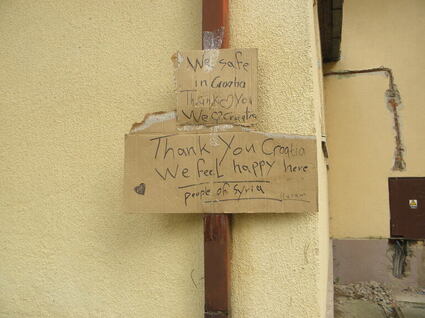 We safe
in Croatia
Thanks♡You
We ♡ Croatia
Thank You Croatia
We feel happy here
people of Syria